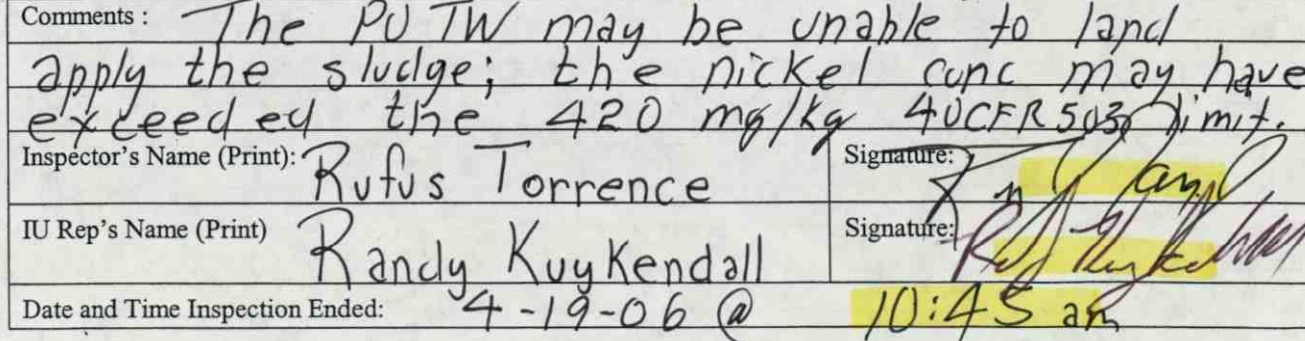 Comments : The POTW may be unable to land
apply the sludge; the nickel conc may have
exceeded the 420 mg/kg 40CFR503 limit.
Inspector's Name (Print): Rufus Torrence Signature:
IU Rep's Name (Print) Randy Kuykendall Signature:
Date and Time Inspection Ended: 4-19-06 @ 10:45 am